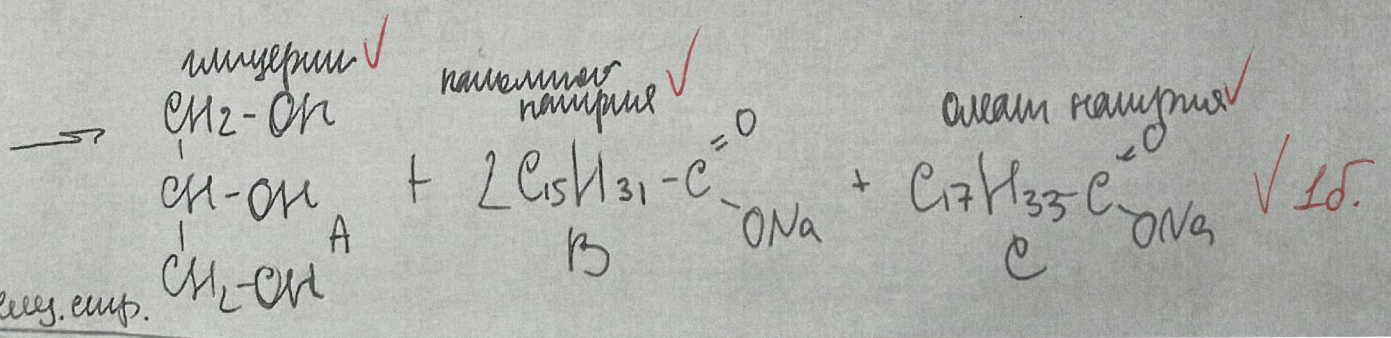 глицерин ✓
пальмитат натрия ✓
олеат натрия ✓
CH2-OH
CH-OH
CH2-OH
A
+ 2C15H31-C=O
-ONa
B
+ C17H33-C=O
-ONa
C
✓ 1б.
след. стр.